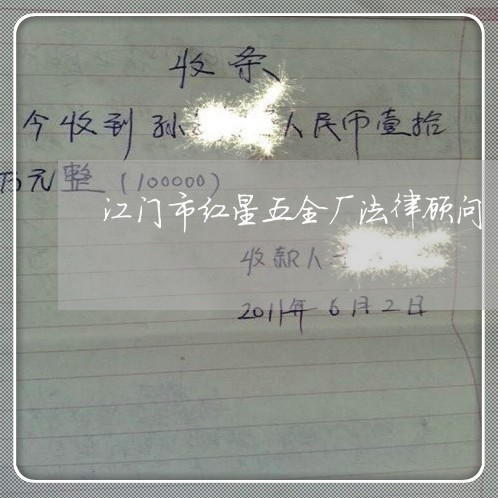 收条
今收到孙人民币壹拾
万元整（100000）
江门市红星五金厂法律顾问
收款人
2011年6月2日